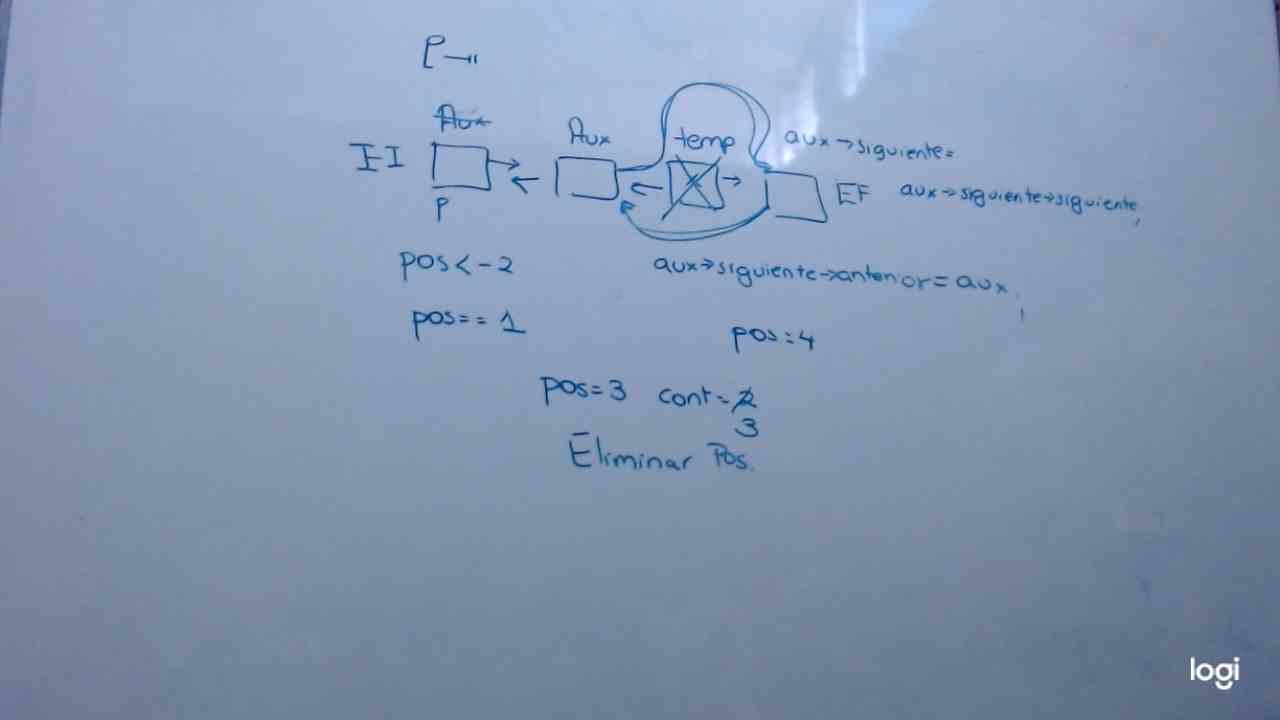 P→"
Aux
Aux
temp
aux→siguiente=
EF
aux→siguiente→siguiente;
P
pos<-2
aux→siguiente→anterior=aux;
pos==1
pos=4
pos=3 cont=2
3
Eliminar Pos.
logi